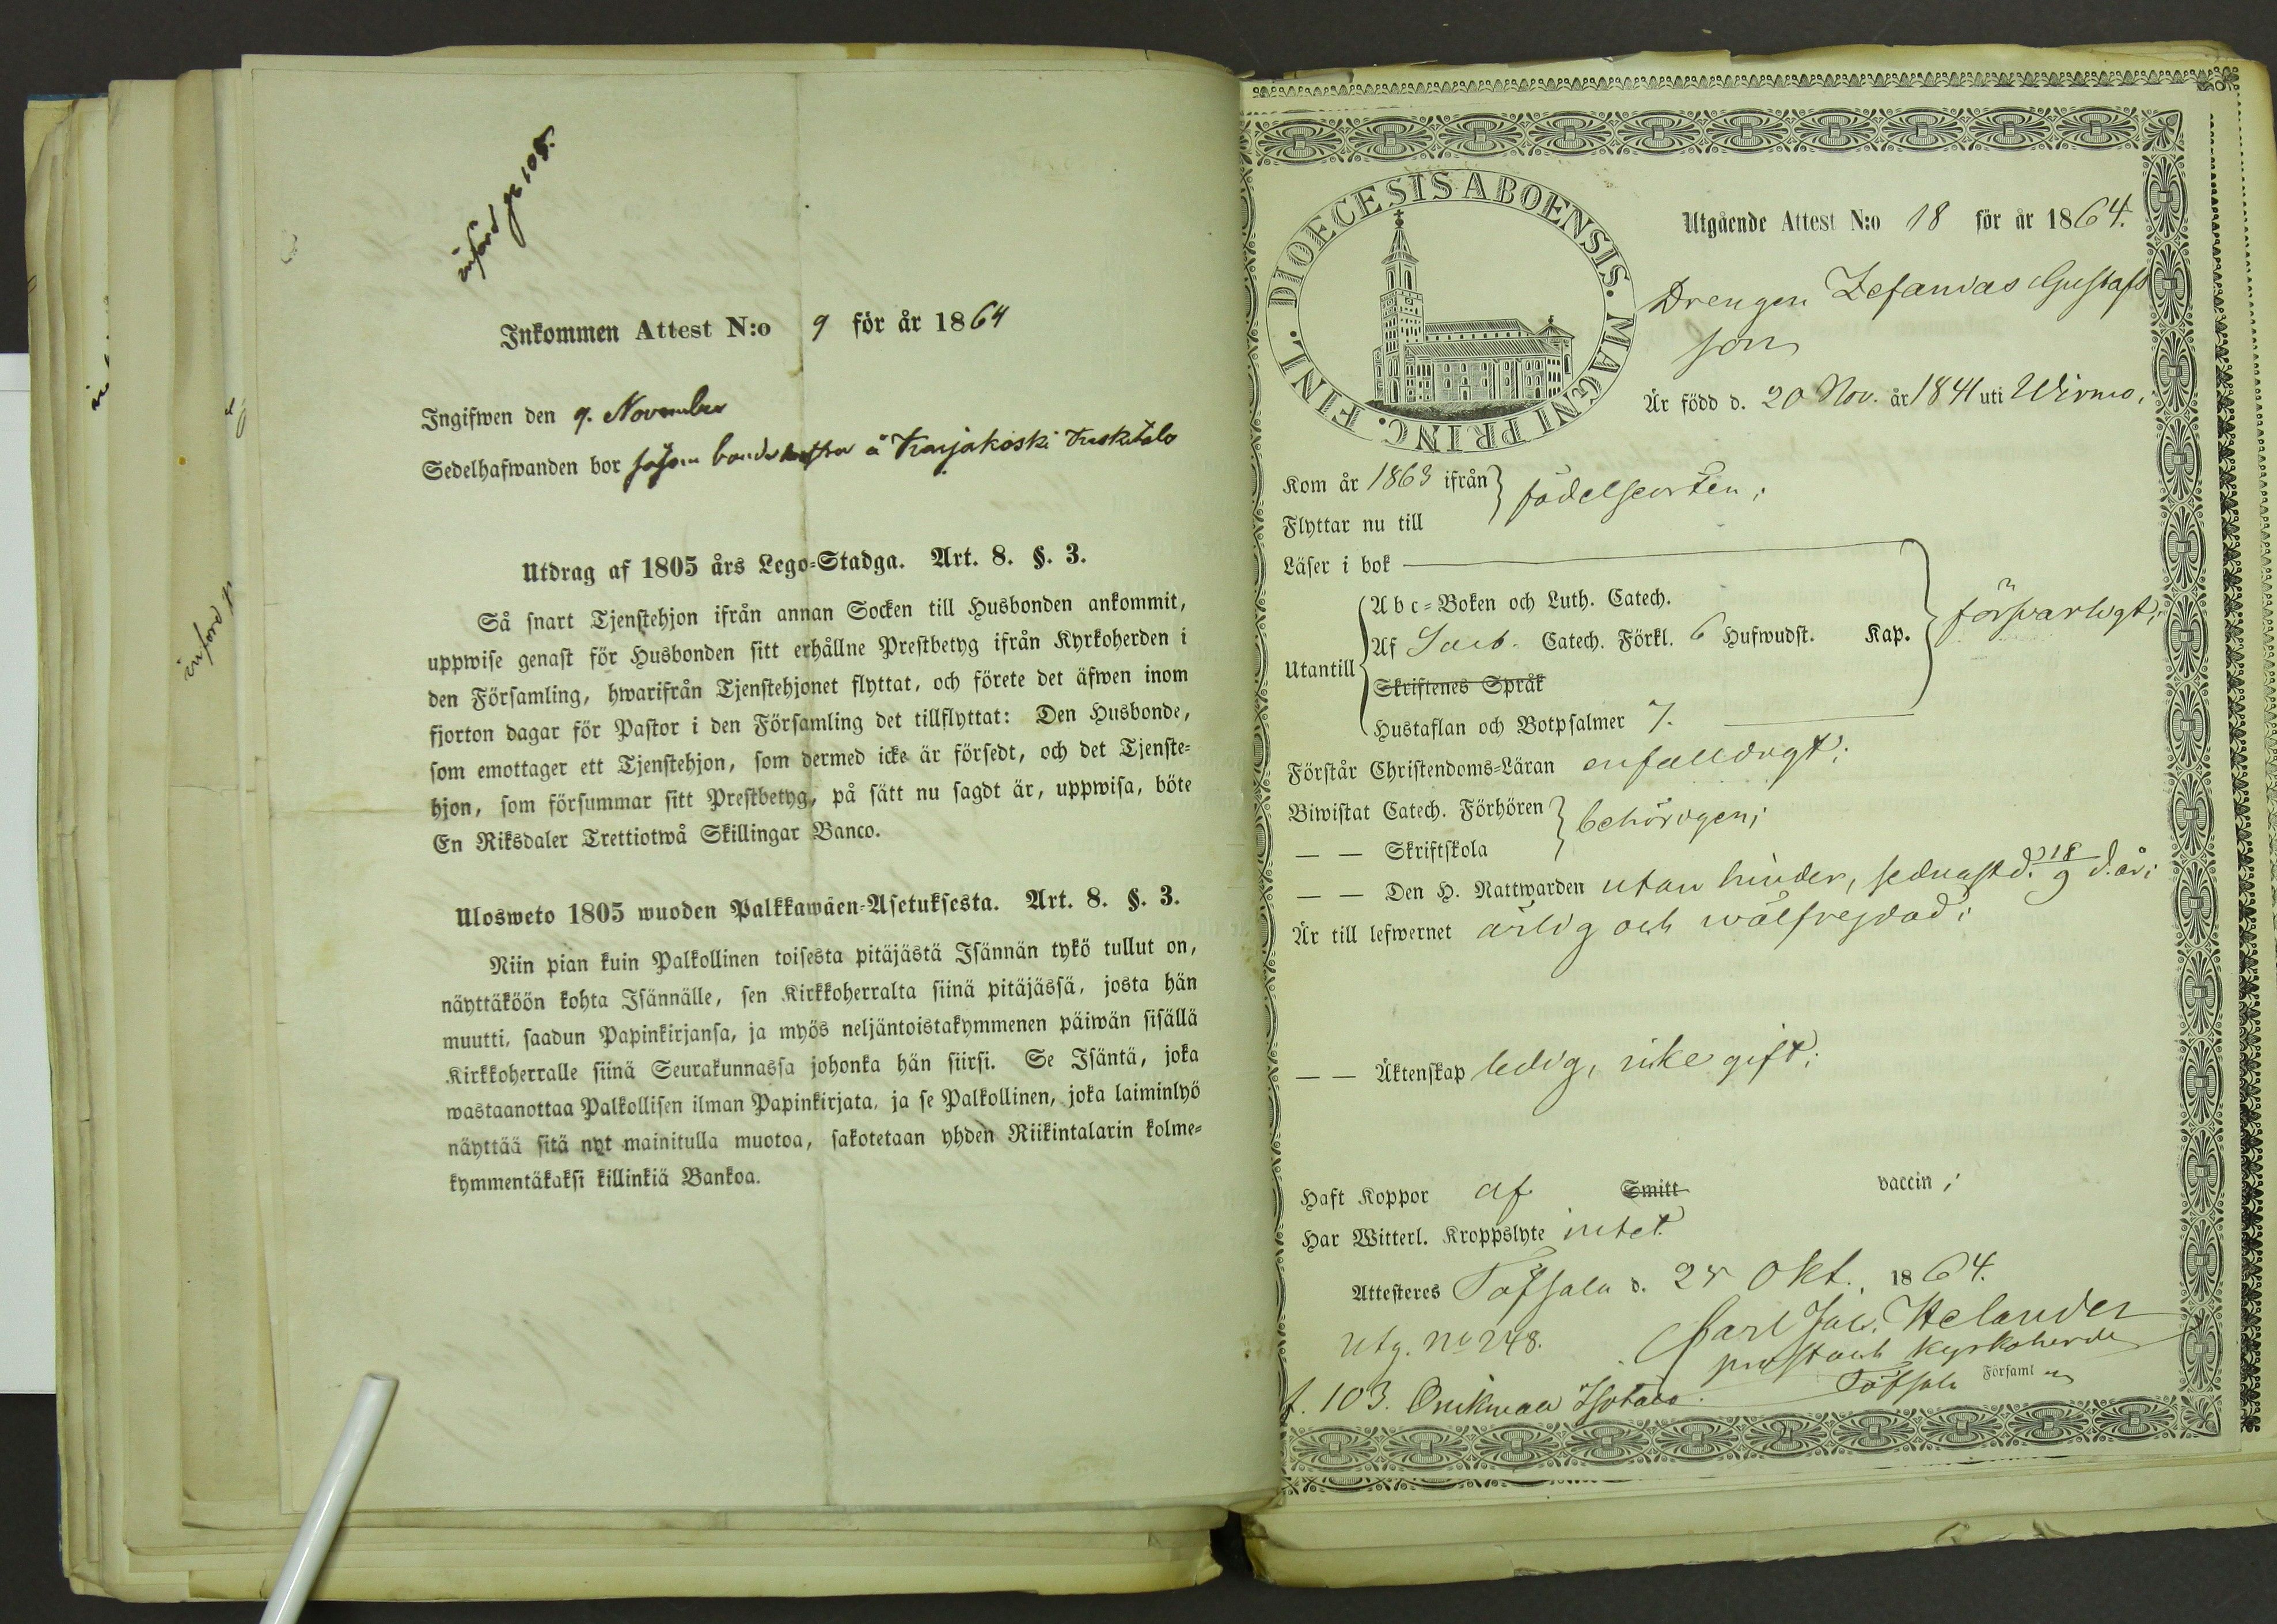 införd pg 105.
Inkommen Attest N:o 9 för år 1864
Ingifwen den 9. November
Sedelhafwanden bor såsom bonde å Karjakoski Keskitalo
Utdrag af 1805 års Lego-Stadga. Art. 8. §. 3.
Så snart Tjenstehjon ifrån annan Socken till Husbonden ankommit,
uppwise genast för Husbonden sitt erhållne Prestbetyg ifrån Kyrkoherden i
den Församling, hwarifrån Tjenstehjonet flyttat, och förete det äfwen inom
fjorton dagar för Pastor i den Församling det tillflyttat: Den Husbonde,
som emottager ett Tjenstehjon, som dermed icke är försedt, och det Tjenste-
hjon, som försummar sitt Prestbetyg, på sätt nu sagdt är, uppwisa, böte
En Riksdaler Trettiotwå Skillingar Banco.
Ulosweto 1805 wuoden Palkkawäen-Asetuksesta. Art. 8. §. 3.
Niin pian kuin Palkollinen toisesta pitäjästä Isännän tykö tullut on,
näyttäköön kohta Isännälle, sen Kirkkoherralta siinä pitäjässä, josta hän
muutti, saadun Papinkirjansa, ja myös neljäntoistakymmenen päiwän sisällä
Kirkkoherralle siinä Seurakunnassa johonka hän siirsi. Se Isäntä, joka
wastaanottaa Palkollisen ilman Papinkirjata, ja se Palkollinen, joka laiminlyö
näyttää sitä nyt mainitulla muotoa, sakotetaan yhden Riikintalarin kolme-
kymmentäkaksi killinkiä Bankoa.
införd p
DIOECESIS ABOENSIS. MAGNI PRINC. FINL.
Utgående Attest N:o 18 för år 1864.
Drengen Zefanias Gustafs
son
Är född d. 20 Nov. år 1841 uti Wirmo,
Kom år 1863 ifrån } födelseorten;
Flyttar nu till
Läser i bok
Abc-Boken och Luth. Catech.
Af Sveb. Catech. Förkl. 6 Hufwudst. Kap. försvarligt;
Utantill
Skriftenes Språk
Hustaflan och Botpsalmer 7.
Förstår Christendoms-Läran enfaldigt;
Biwistat Catech. Förhören } behörigen;
— — Skriftskola
— — Den H. Nattwarden utan hinder, sednast d. 18/9 d. år;
Är till lefwernet ärlig och wälfrejdad;
— — Äktenskap ledig, icke gift;
Haft Koppor af Smitt vaccin;
Har Witterl. Kroppslyte intet.
Attesteres Töfsala d. 25 Okt. 1864.
Utg. No 248. Carl Jac. Helander
prost och Kyrkoherde
Töfsala Församl
f. 103. Onikmaa Isotalo.